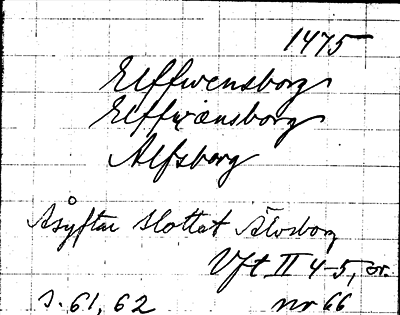 1475
Elffwensborg
Elffwænsborg
Alfsborg
Åsyftar slottet Älvsborg
Vft II 4-5, or.
s. 61, 62 nr 66